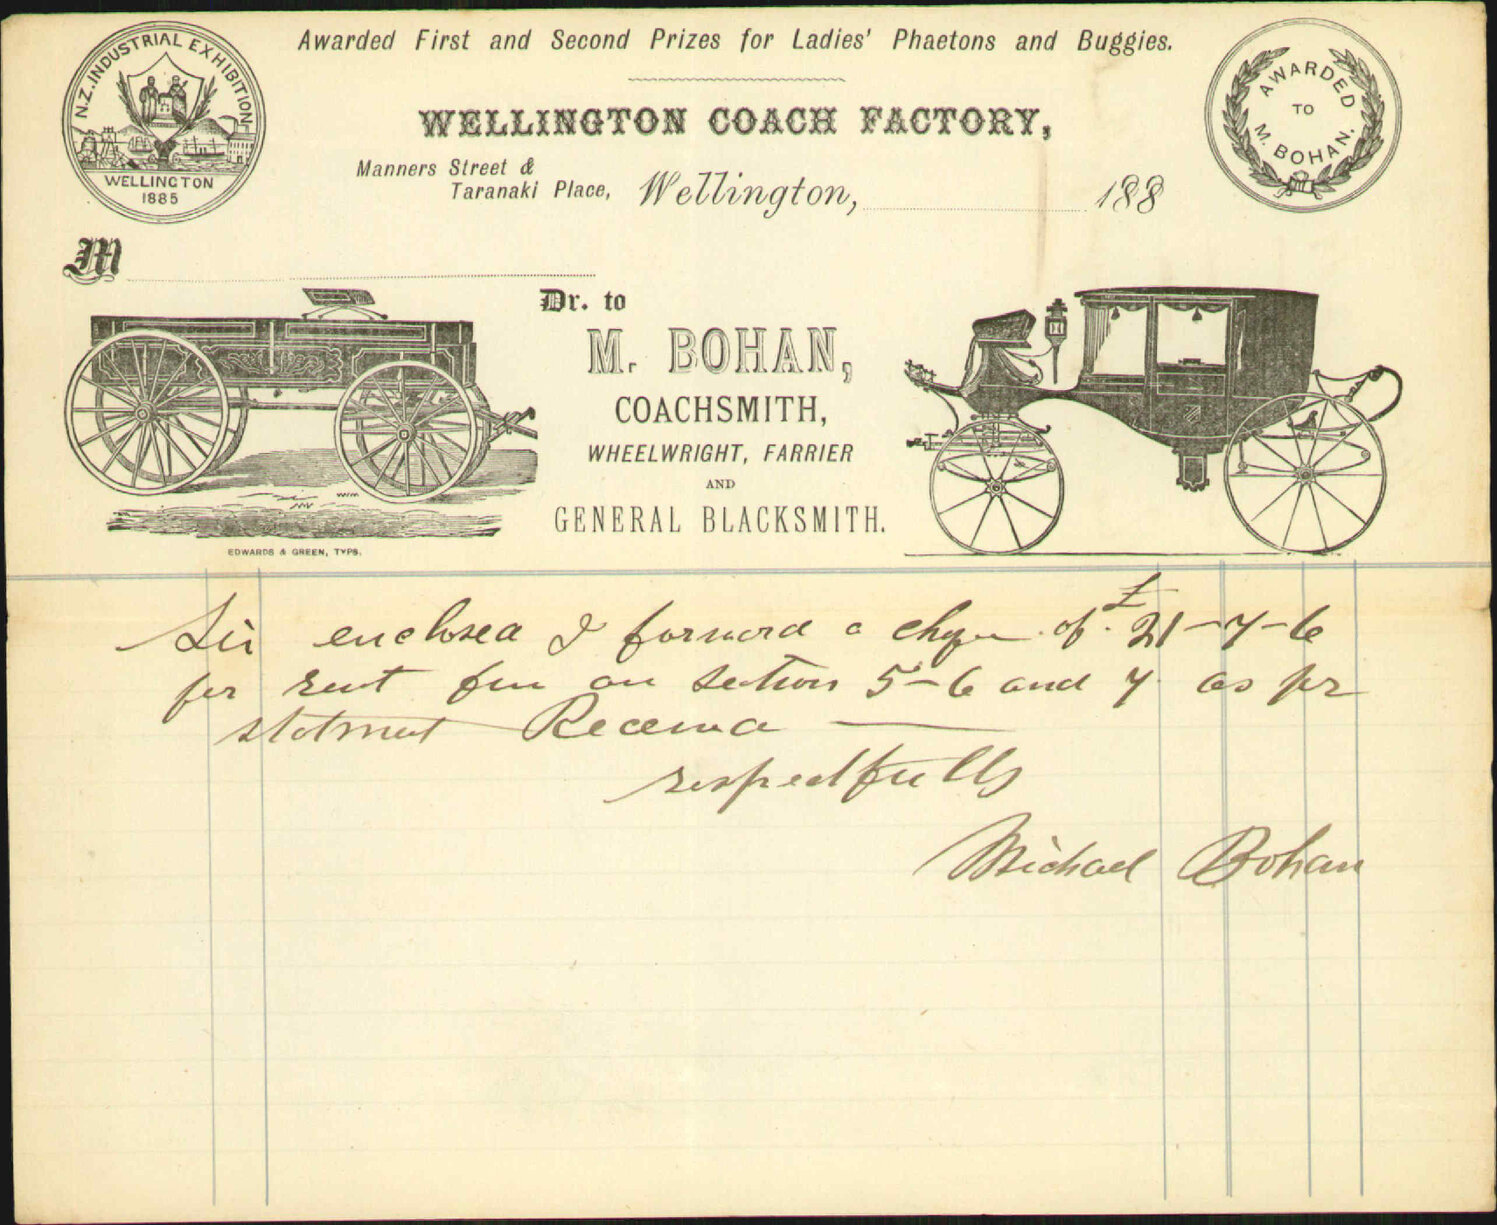 Awarded First and Second Prizes for Ladies' Phaetons and Buggies.
N.Z. INDUSTRIAL EXHIBITION
WELLINGTON
1885
AWARDED
TO
M. BOHAN.
WELLINGTON COACH FACTORY,
Manners Street &
Taranaki Place,
Wellington, 188
M
Dr. to
M. BOHAN,
COACHSMITH,
WHEELWRIGHT, FARRIER
AND
GENERAL BLACKSMITH.
EDWARDS & GREEN, TYPS.
Sir enclosed I forward a cheque of £21-7-6
for rent due on section 5-6 and 7 as per
statment Received
respectfully
Michael Bohan